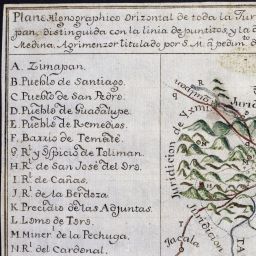 Plano Hignographico Orizontal de toda la Jur
pan, distinguida con la linia de puntitos, y la d
Medina, Agrimenzor titulado por S.M. a pedim. d
A. Zimapan.
B. Pueblo de Santiago.
C. Pueblo de San Pedro.
D. Pueblo de Guadalupe.
E. Pueblo de Remedios.
F. Barrio de Tembtè.
G. Rl. y Ospicio de Toliman.
H. Rl. de San Josef del Oro.
I. Rl. de Cañas.
J. Rl. de la Berdoza.
K. Precidio de las Adjuntas.
L. Lomo de Toro.
M. Minerl. de la Pechuga.
N. Rl. del Cardonal.
Juridicion de Yxmi
R
Juridi
Juridicion
Jacala
TA